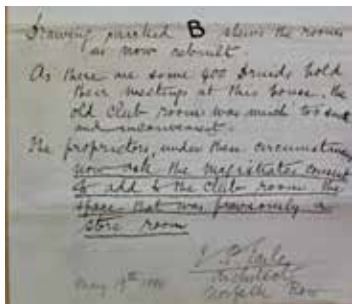 Drawing marked B shews the rooms
as now rebuilt.
As there are some 400 Druids hold
their meetings at this house, the
old club room was much too small
and inconvenient.
The proprietors, under these circumstances
now ask the magistrates consent
to add to the club room the
space that was previously a
store room
Architect
Norfolk Row
May 19th